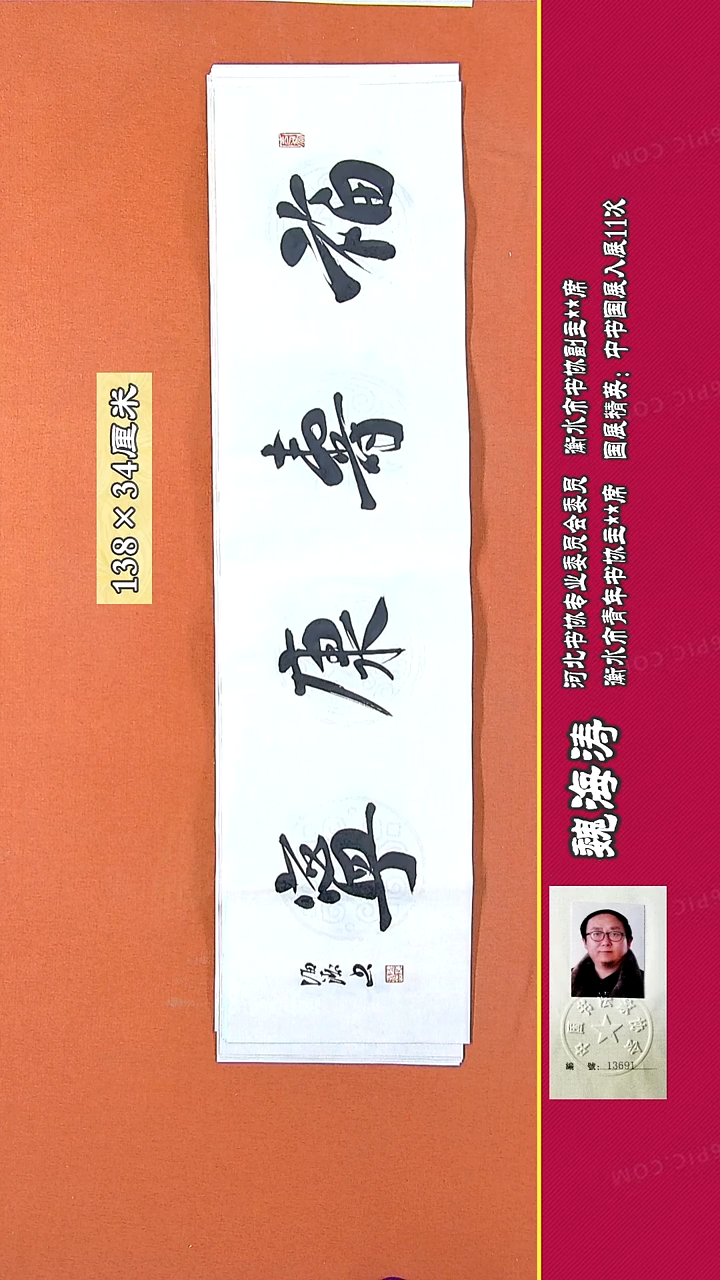 138×34厘米
福壽康寧
海濤书
魏海涛
河北书协专业委员会委员 衡水市书协副主**席
衡水市青年书协主**席 国展精英：中书国展入展11次
編 號：13691